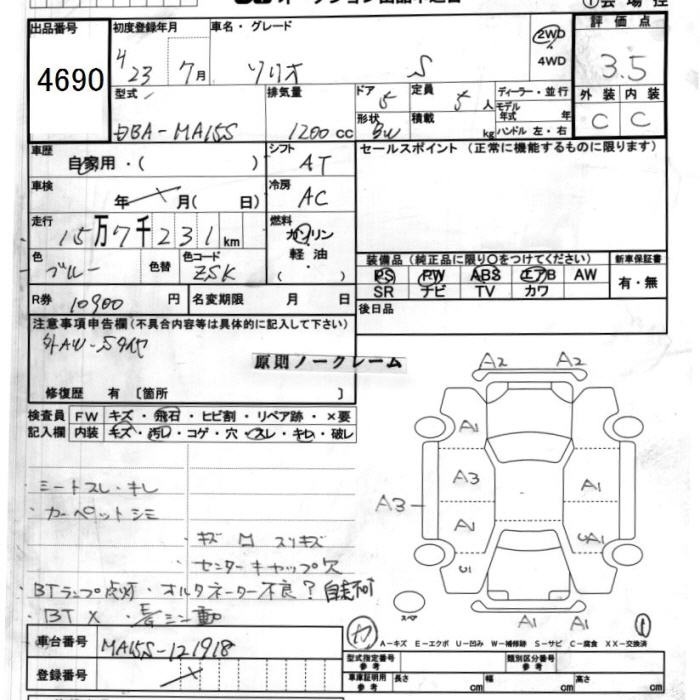 出品番号
4690
初度登録年月
H 23 7月
車名・グレード
ソリオ S
2WD
4WD
評価点
3.5
外装 内装
C C
型式
DBA-MA15S
排気量
1200cc
ドア 5
定員 5人
形状 BW
積載 kg
ディーラー・並行
モデル年式 年
ハンドル 左・右
車歴
自家用・( )
シフト
AT
セールスポイント (正常に機能するものに限ります)
車検
年 月( 日)
冷房
AC
走行
15万7千231km
燃料
ガソリン
軽油
・( )
色
ブルー
色替
色コード
ZSK
装備品 (純正品に限り○をつけてください)
PS PW ABS エアB AW
SR ナビ TV カワ
新車保証書
有・無
R券 10900円
名変期限 月 日
後日品
注意事項申告欄(不具合内容等は具体的に記入して下さい)
外AW-
原則ノークレーム
修復歴 有 [箇所 ]
検査員記入欄
FW キズ・飛石・ヒビ割・リペア跡・×要
内装 キズ・汚レ・コゲ・穴・スレ・キレ・破レ
シートスレ・キレ
・カーペットシミ
キズ スリキズ
センターキャップ欠
・BTランプ点灯・オルタネーター不良?自走不可
・BT× ・エンジン動
A2 A2
A1
A3 A1
A3
A1
A1 A1
スペア
A-キズ E-エクボ U-凹み W-補修跡 S-サビ C-腐食 XX-交換済
車台番号
MA15S-121918
登録番号
型式指定番号参考
類別区分番号参考
車庫証明用参考
長さ cm
幅 cm
高さ cm